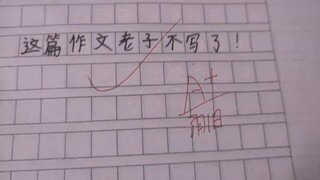 这篇作文老子不写了!
A+